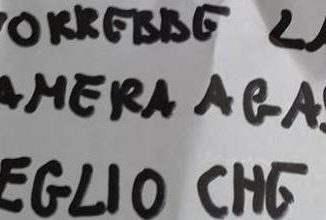 ORREBBE LA
AMERA A GAS
EGLIO CHE